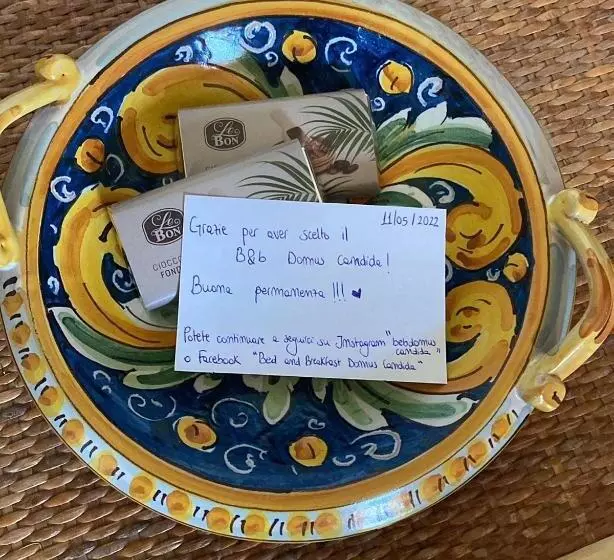 Le
BON
Le
BON
CIOCCO
FOND
11/05/2022
Grazie per aver scelto il
B&b Domus Candida!
Buona permanenza !!! ♥
Potete continuare a seguirci su Instagram "bebdomus
candida"
o Facebook "Bed and Breakfast Domus Candida"